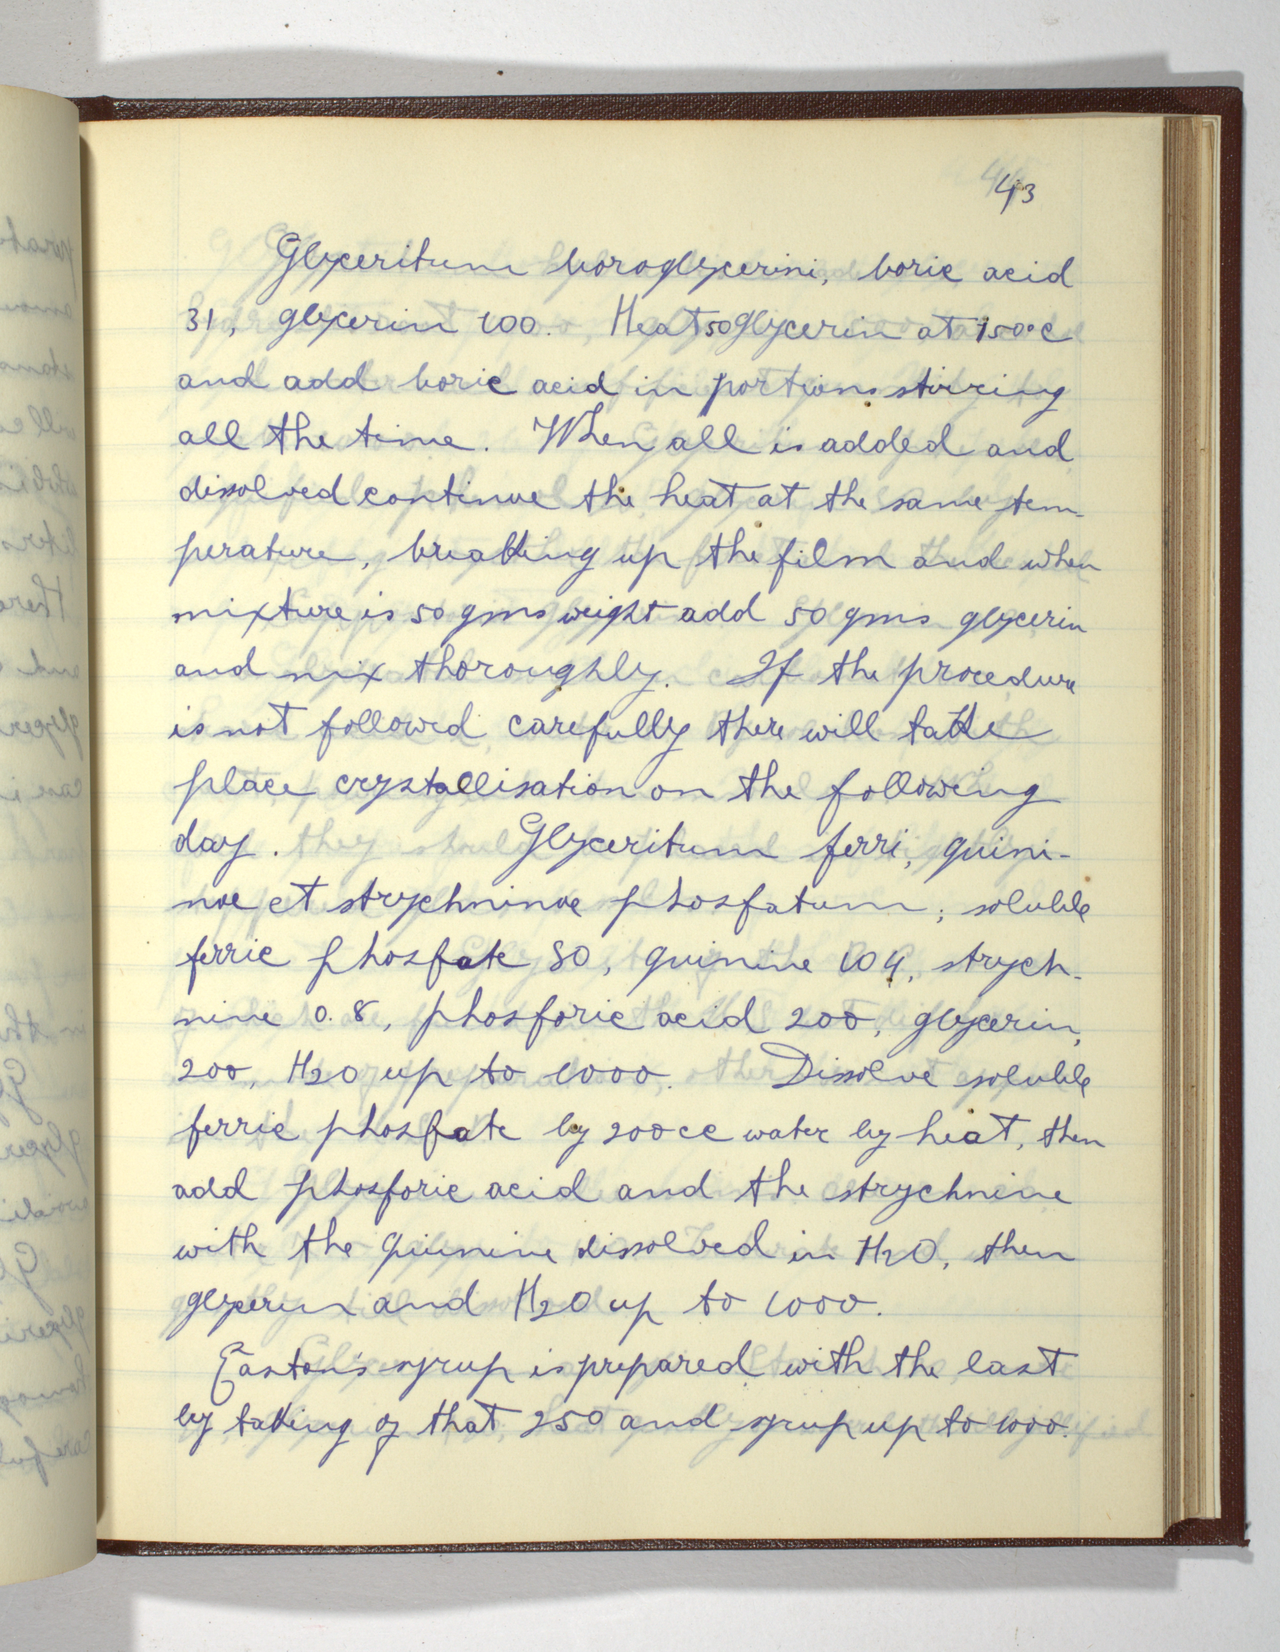 43
Glyceritum boroglycerini, boric acid
31, glycerin 100. Heat 50 glycerin at 150°C
and add boric acid in portions stirring
all the time. When all is added and
dissolved continue the heat at the same tem-
perature, breaking up the film and when
mixture is 50 gms weight add 50 gms glycerin
and mix thoroughly. If the procedure
is not followed carefully there will take
place crystallisation on the following
day. Glyceritum ferri, quini-
nae et strychninae phosfatum; soluble
ferric phosfate 80, quinine 104, strych-
nine 0.8, phosforic acid 200, glycerin,
200, H2O up to 1000. Dissolve soluble
ferric phosfate by 200cc water by heat, then
add phosforic acid and the strychnine
with the quinine dissolved in H2O, then
glycerin and H2O up to 1000.
Easton's syrup is prepared with the last
by taking of that 250 and syrup up to 1000.